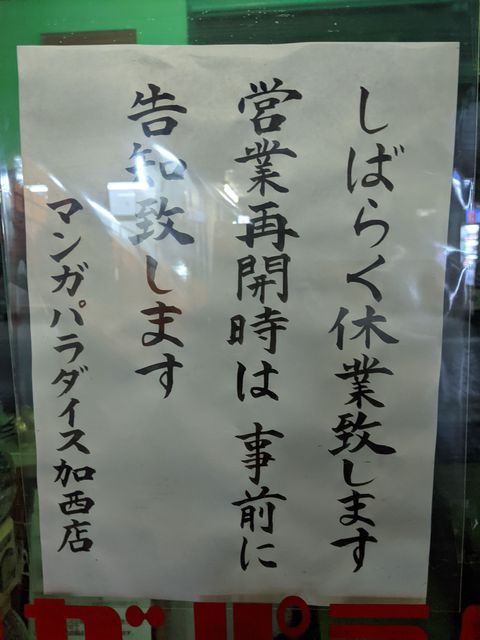 しばらく休業致します
営業再開時は 事前に
告知致します
マンガパラダイス加西店
ガパラ